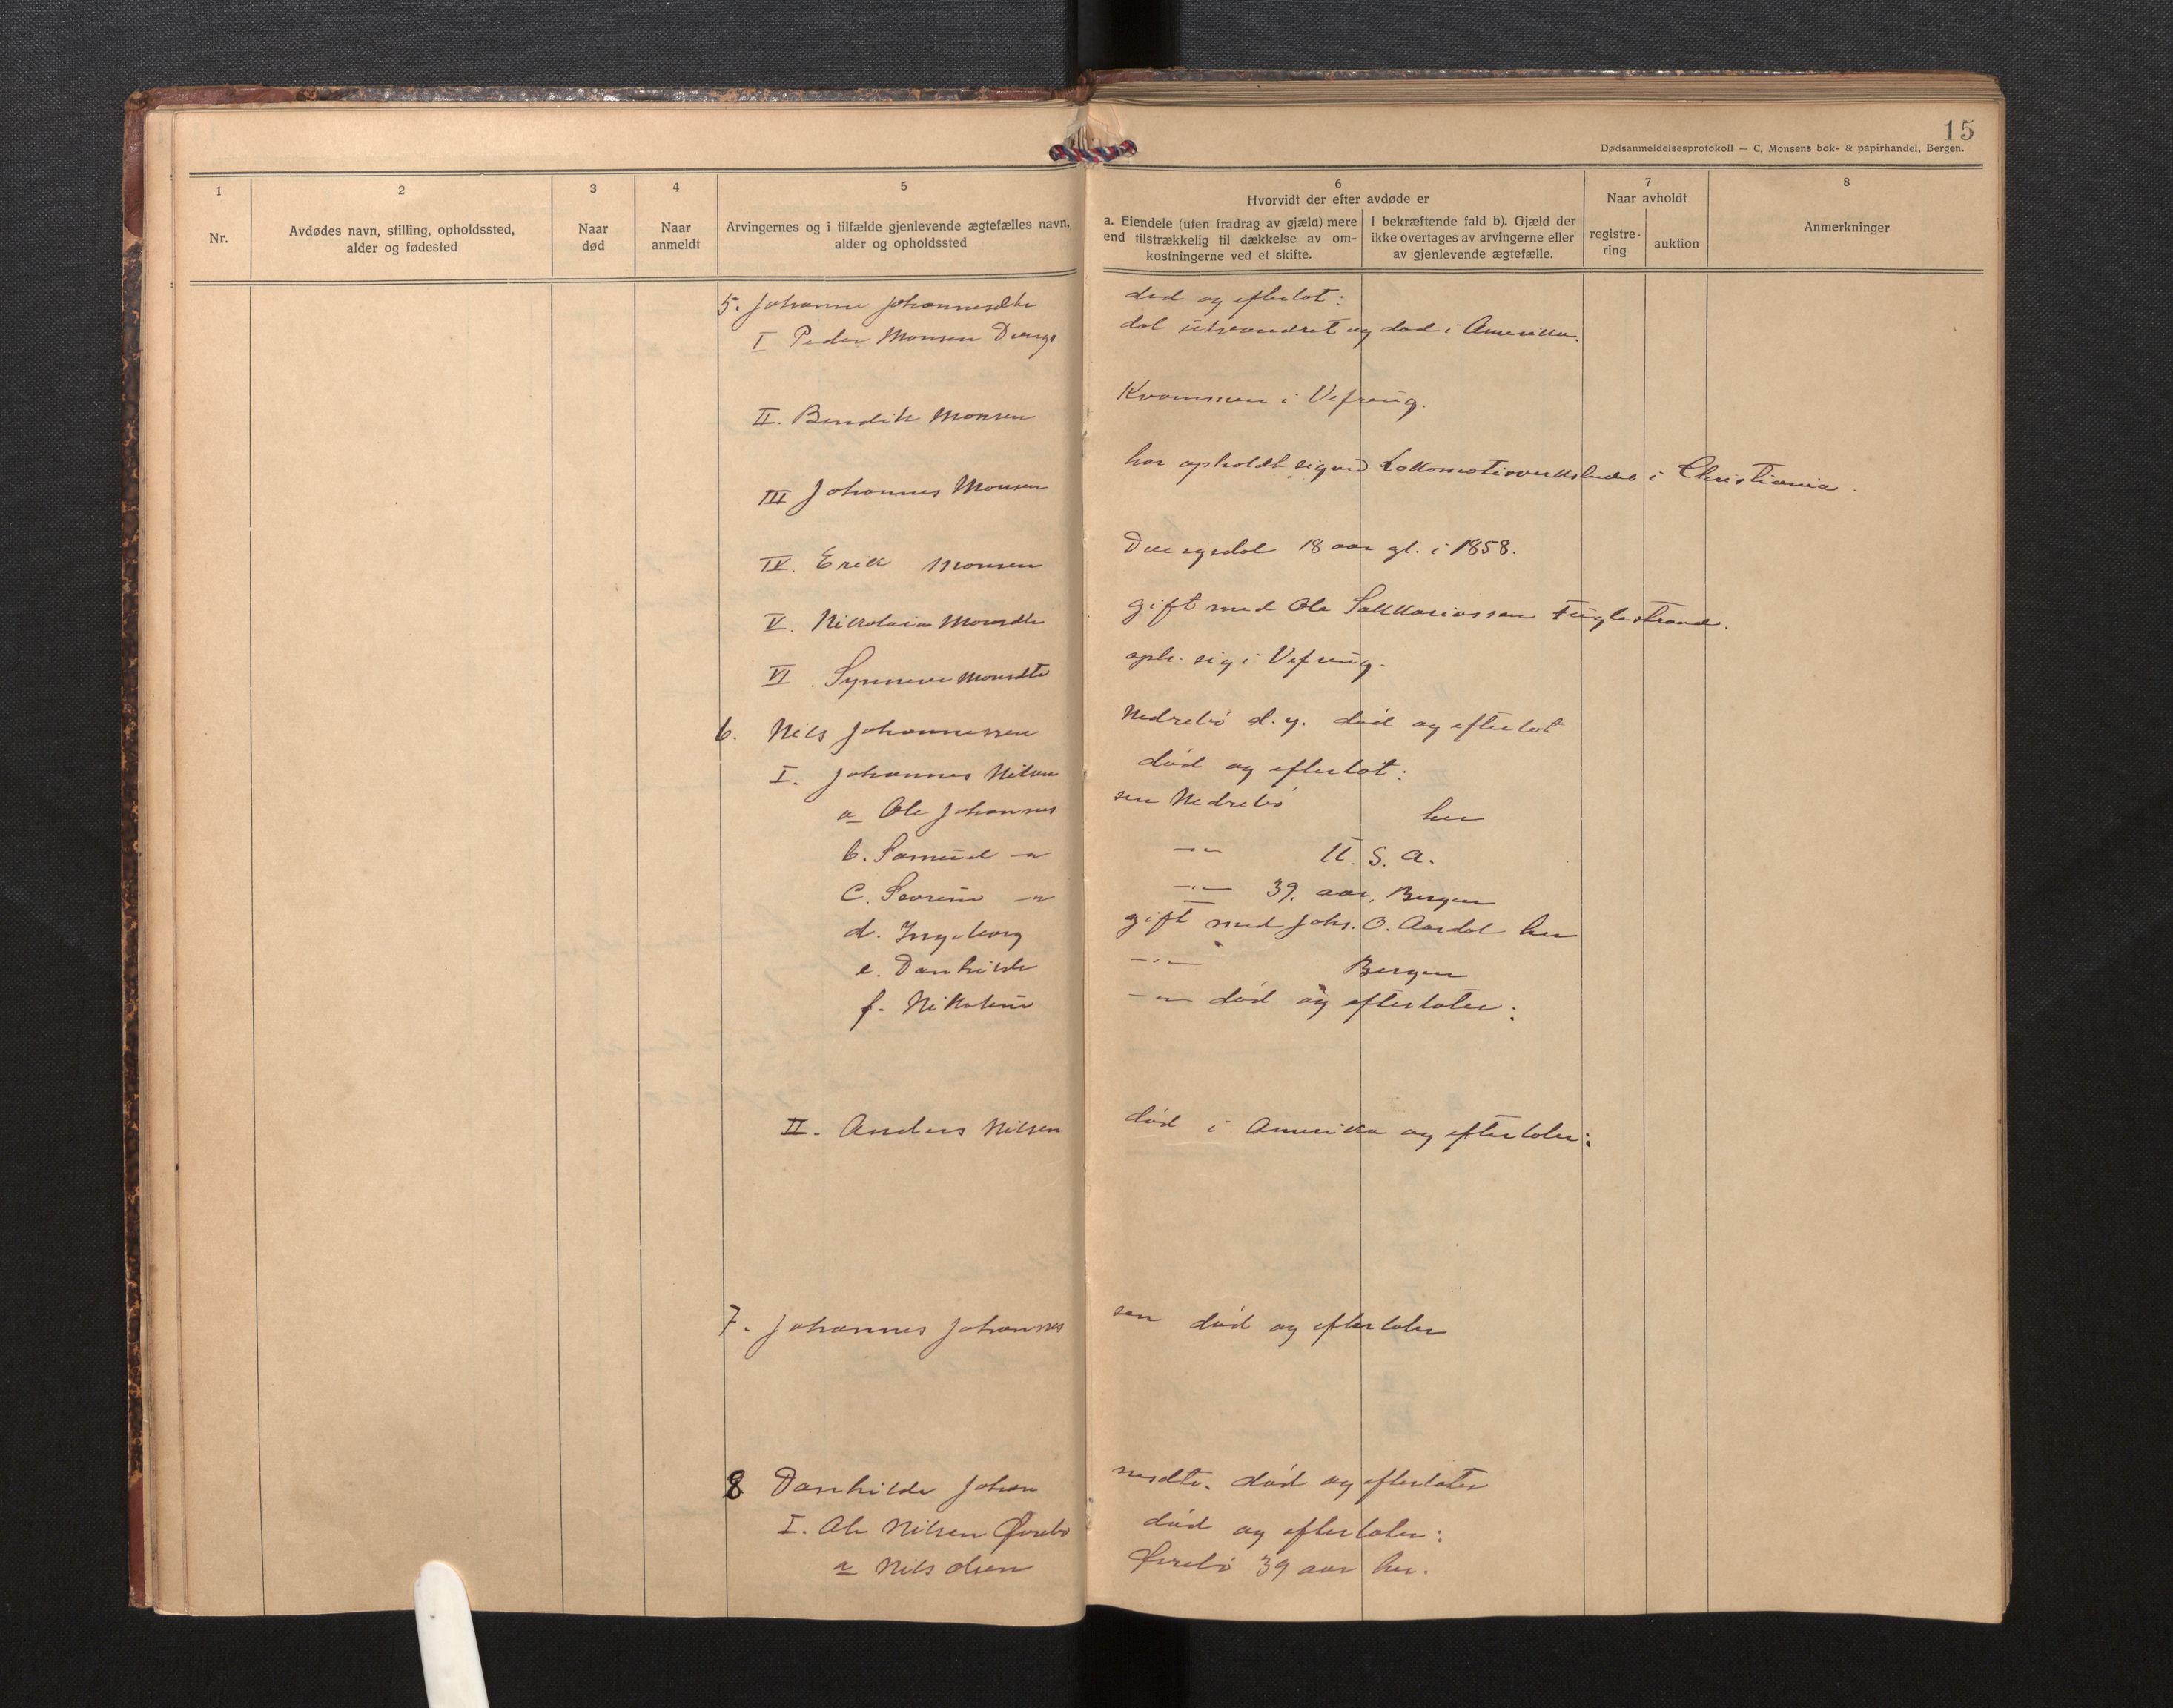 15
Dødsanmeldelsesprotokoll — C. Monsens bok- & papirhandel, Bergen.
1
Nr.
2
Avdødes navn, stilling, opholdssted,
alder og fødested
3
Naar
død
4
Naar
anmeldt
5
Arvingernes og i tilfælde gjenlevende ægtefælles navn,
alder og opholdssted
6
Hvorvidt der efter avdøde er
a. Eiendele (uten fradrag av gjæld) mere
end tilstrækkelig til dækkelse av om-
kostningerne ved et skifte.
I bekræftende fald b). Gjæld der
ikke overtages av arvingerne eller
av gjenlevende ægtefælle.
7
Naar avholdt
registre-
ring
auktion
8
Anmerkninger
5. Johanne Johannesdtr død og efterlot:
I Peder Monsen Dvergs dal utvandret og død i Amerika.
II. Bendik Monsen Kvammen i Vefring.
III Johannes Monsen har opholdt sig ved Lokomotivverkstedet i Christiania.
IV. Erik Monsen Dvergsdal 18 aar gl. i 1858.
V. Nikolaia Monsdtr gift med Ole Sakkariassen Fuglestrand.
VI. Synneve Monsdtr oph. sig i Vefring.
6. Nils Johannessen Nedrebø d.y. død og efterlot
I. Johannes Nilsen død og efterlot:
a Ole Johannes sen Nedrebø her
b. Samuel -"- -"- U.S.A.
c. Severin -"- -"- 39 aar, Bergen
d. Ingeborg gift med Johs. O. Aardal her
e. Danhilde -"- Bergen
f. Nikoline -"- død og efterlater:
II. Anders Nilsen død i Amerika og efterlater:
7. Johannes Johannes sen død og efterlater
8 Danhilde Johan nesdtr. død og efterlater
I. Ole Nilsen Øvrebø død og efterlater:
a Nils Olsen Øvrebø 39 aar her.